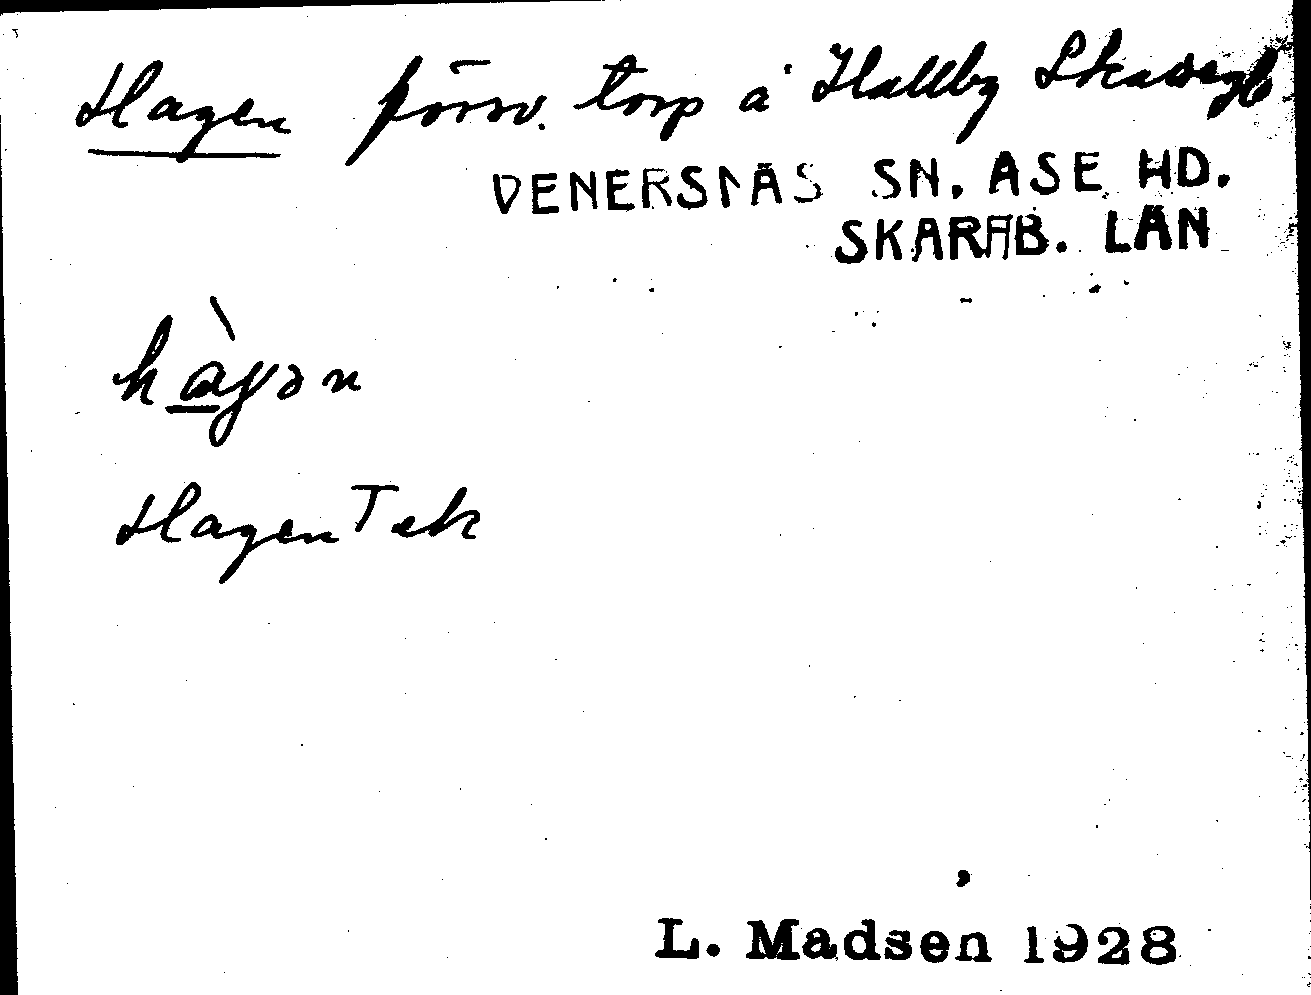 Hagen försv. torp å Hallby Skattegb
VENERSNÄS SN. ÅSE HD.
SKARAB. LÄN
hàgən
Hagen Tek
L. Madsen 1928